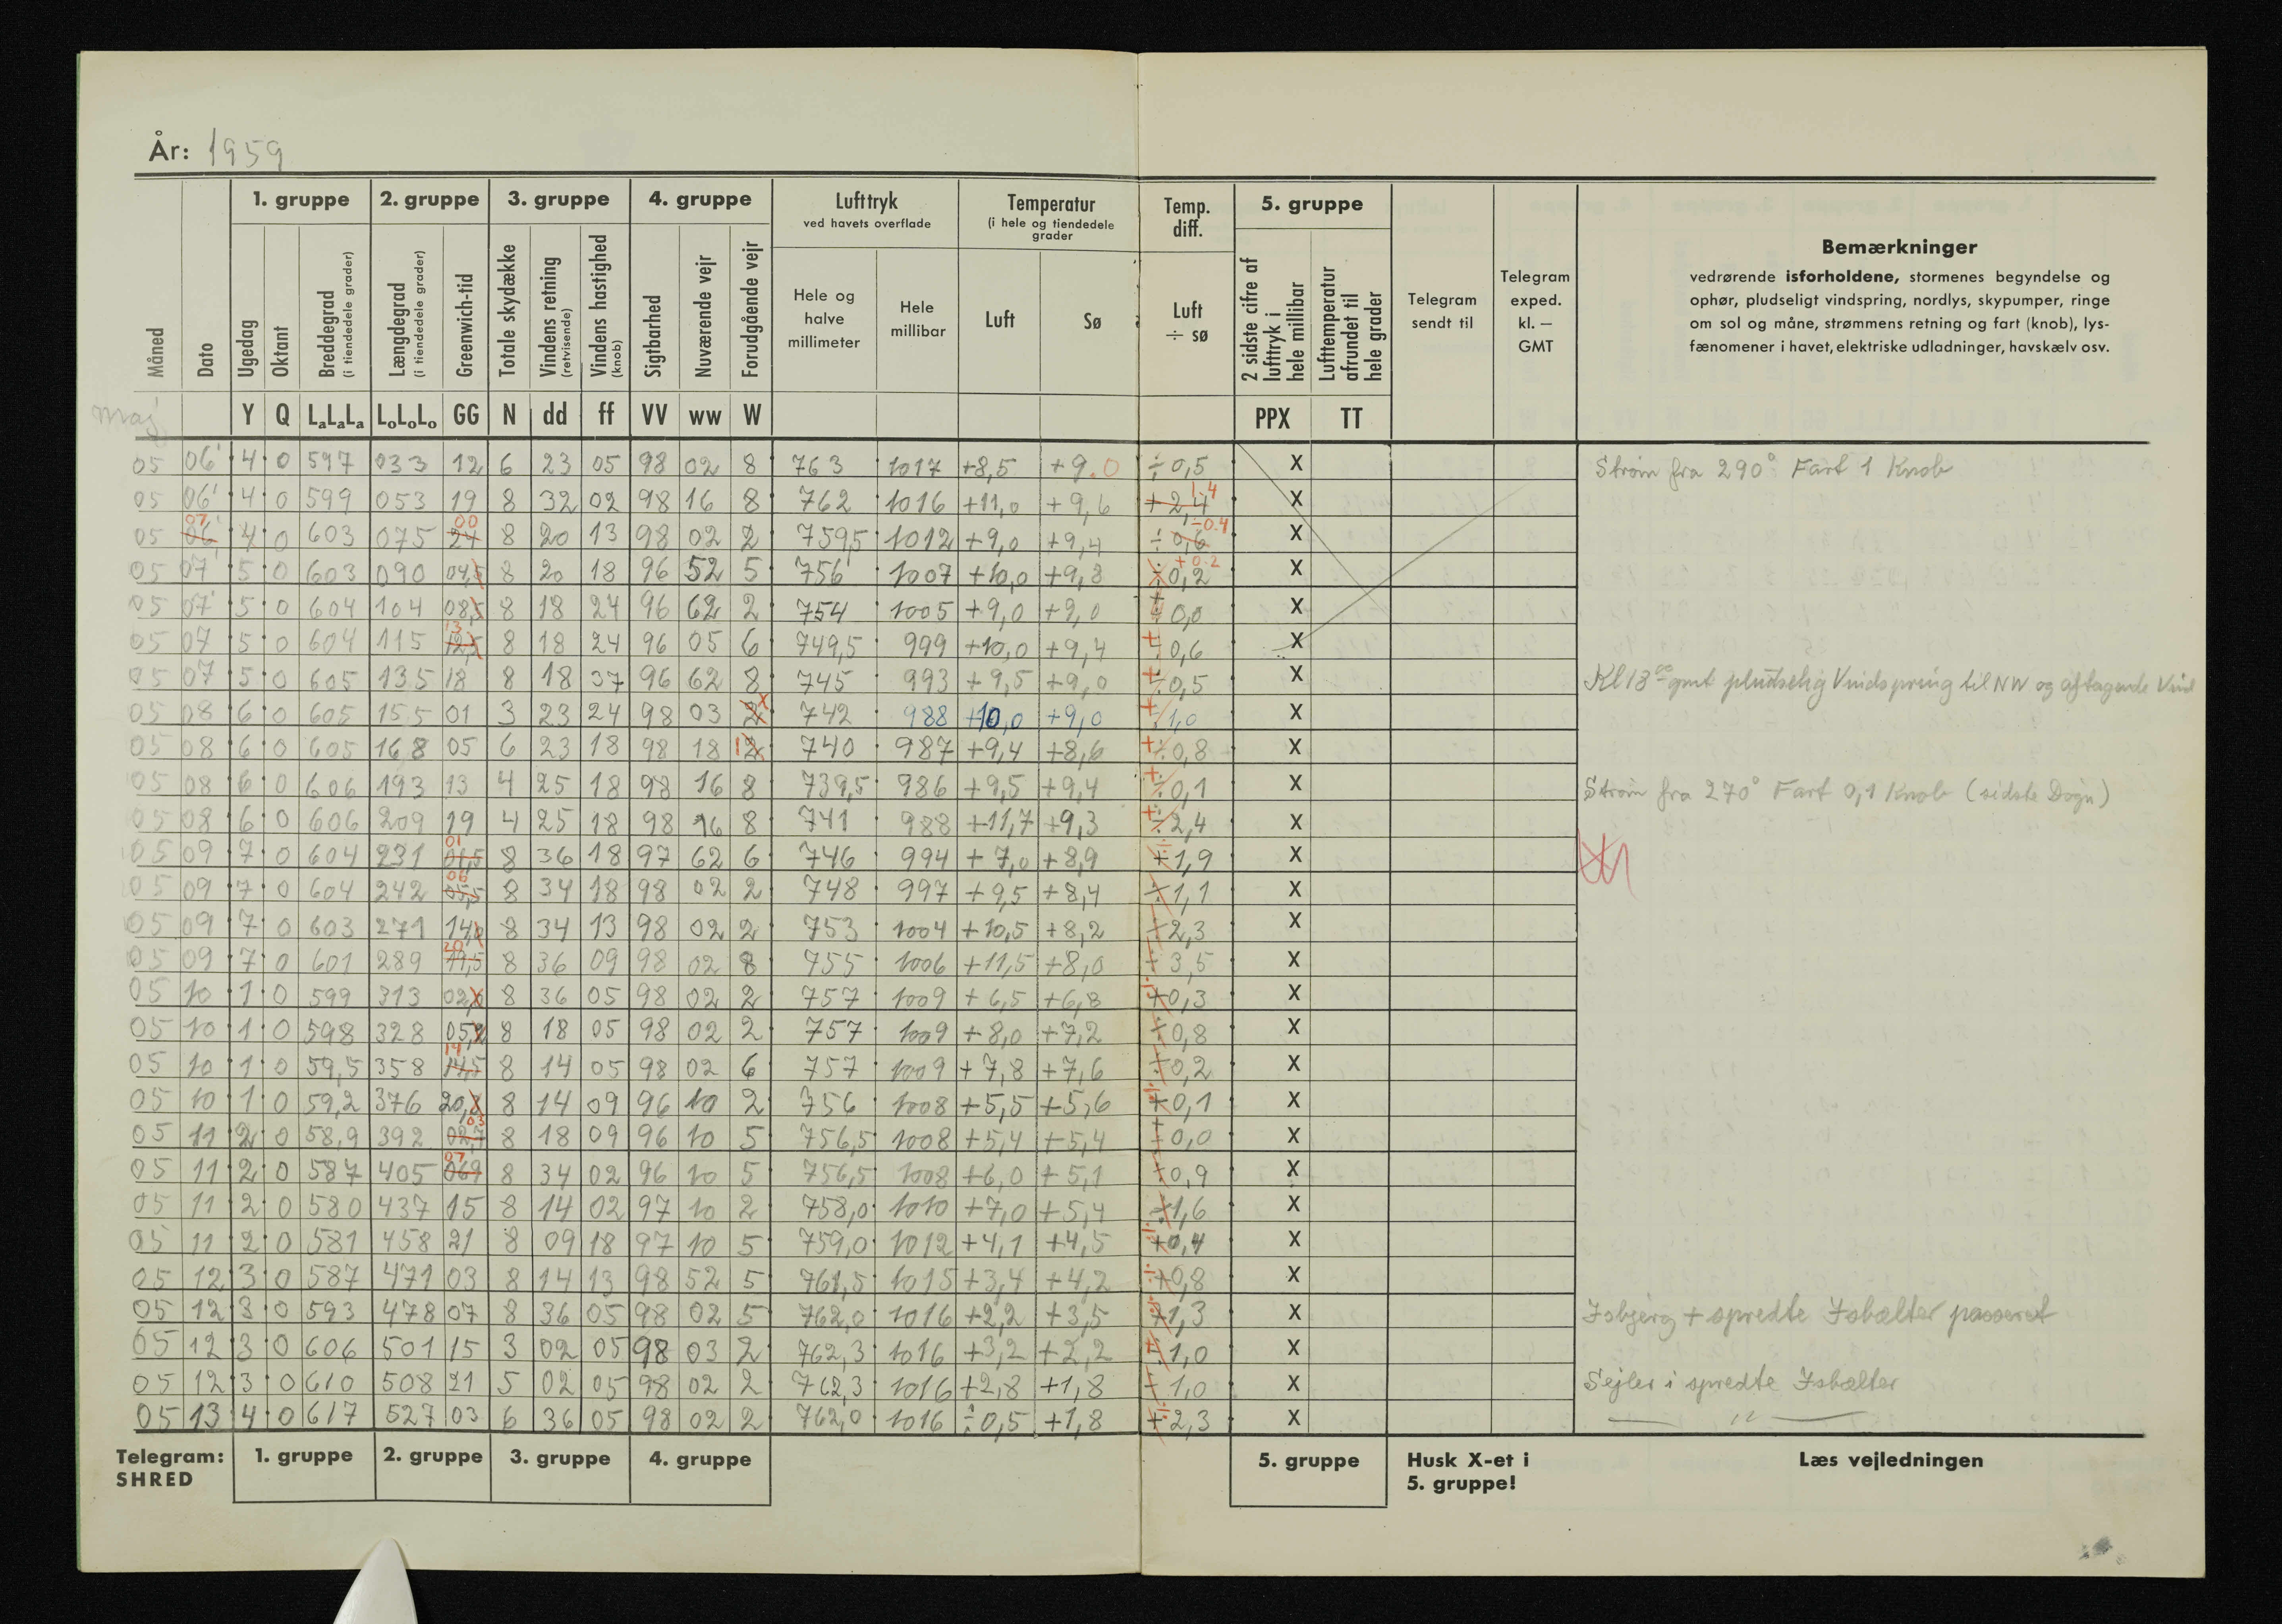 År: 1959
1. gruppe 2. gruppe 3. gruppe 4. gruppe Lufttryk ved havets overflade Temperatur (i hele og tiendedele grader Temp. diff. 5. gruppe
Måned Dato Ugedag Oktant Breddegrad (i tiendedele grader) Længdegrad (i tiendedele grader) Greenwich-tid Totale skydække Vindens retning (retvisende) Vindens hastighed (knob) Sigtbarhed Nuværende vejr Forudgående vejr Hele og halve millimeter Hele millibar Luft Sø Luft ÷ sø 2 sidste cifre af lufttryk i hele millibar Lufttemperatur afrundet til hele grader Telegram sendt til Telegram exped. kl. — GMT
Bemærkninger
vedrørende isforholdene, stormenes begyndelse og
ophør, pludseligt vindspring, nordlys, skypumper, ringe
om sol og måne, strømmens retning og fart (knob), lys-
fænomener i havet, elektriske udladninger, havskælv osv.
maj Y Q LaLaLa LoLoLo GG N dd ff VV ww W PPX TT
05 06 4 0 597 033 12 6 23 05 98 02 8 763 1017 +8,5 +9.0 ÷0,5 X Strøm fra 290° Fart 1 Knob
05 06 4 0 599 053 19 8 32 02 98 16 8 762 1016 +11,0 +9,6 +2,4 1.4 X
05 06 07 4 0 603 075 24 00 8 20 13 98 02 2 759,5 1012 +9,0 +9,4 ÷0,6 -0.4 X
05 07 5 0 603 090 04,5 8 20 18 96 52 5 756 1007 +10,0 +9,8 ÷0,2 +0.2 X
05 07 5 0 604 104 08,5 8 18 24 96 62 2 754 1005 +9,0 +9,0 0,0 X
05 07 5 0 604 115 12,5 13 8 18 24 96 05 6 749,5 999 +10,0 +9,4 +0,6 X
05 07 5 0 605 135 18 8 18 37 96 62 8 745 993 +9,5 +9,0 +0,5 X Kl 18⁰⁰ gmt pludselig Vindspring til NW og aftagende Vind
05 08 6 0 605 155 01 3 23 24 98 03 2 X 742 988 +10,0 +9,0 +1,0 X
05 08 6 0 605 168 05 6 23 18 98 18 12 740 987 +9,4 +8,6 +0,8 X
05 08 6 0 606 193 13 4 25 18 98 16 8 739,5 986 +9,5 +9,4 +0,1 X Strøm fra 270° Fart 0,1 Knob (sidste Døgn)
05 08 6 0 606 209 19 4 25 18 98 16 8 741 988 +11,7 +9,3 +2,4 X
05 09 7 0 604 231 01,5 01 8 36 18 97 62 6 746 994 +7,0 +8,9 ÷1,9 X
05 09 7 0 604 242 05,5 06 8 34 18 98 02 2 748 997 +9,5 +8,4 +1,1 X
05 09 7 0 603 271 14, 8 34 13 98 02 2 753 1004 +10,5 +8,2 +2,3 X
05 09 7 0 601 289 19,5 20 8 36 09 98 02 8 755 1006 +11,5 +8,0 +3,5 X
05 10 1 0 599 313 02 8 36 05 98 02 2 757 1009 +6,5 +6,8 ÷0,3 X
05 10 1 0 598 328 05, 8 18 05 98 02 2 757 1009 +8,0 +7,2 +0,8 X
05 10 1 0 59,5 358 14 8 14 05 98 02 6 757 1009 +7,8 +7,6 +0,2 X
05 10 1 0 59,2 376 20, 8 14 09 96 10 2 756 1008 +5,5 +5,6 ÷0,1 X
05 11 2 0 58,9 392 02,7 03 8 18 09 96 10 5 756,5 1008 +5,4 +5,4 0,0 X
05 11 2 0 587 405 069 07 8 34 02 96 10 5 756,5 1008 +6,0 +5,1 +0,9 X
05 11 2 0 580 437 15 8 14 02 97 10 2 758,0 1010 +7,0 +5,4 +1,6 X
05 11 2 0 581 458 21 8 09 18 97 10 5 759,0 1012 +4,1 +4,5 ÷0,4 X
05 12 3 0 587 471 03 8 14 13 98 52 5 761,5 1015 +3,4 +4,2 ÷0,8 X
05 12 3 0 593 478 07 8 36 05 98 02 5 762,0 1016 +2,2 +3,5 ÷1,3 X Isbjerg + spredte Isbælter passeret
05 12 3 0 606 501 15 3 02 05 98 03 2 762,3 1016 +3,2 +2,2 +1,0 X
05 12 3 0 610 508 21 5 02 05 98 02 2 762,3 1016 +2,8 +1,8 +1,0 X Sejler i spredte Isbælter
05 13 4 0 617 527 03 6 36 05 98 02 2 762,0 1016 ÷0,5 +1,8 ÷2,3 X — " —
Telegram: SHRED 1. gruppe 2. gruppe 3. gruppe 4. gruppe 5. gruppe Husk X-et i 5. gruppe! Læs vejledningen